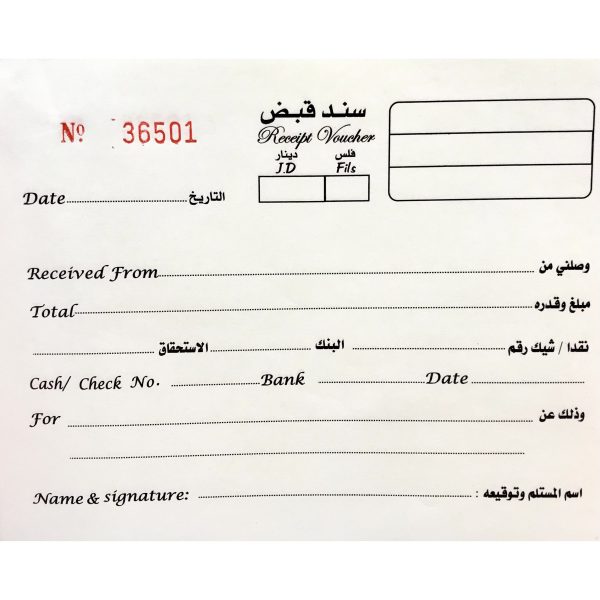 Nº 36501
سند قبض
Receipt Voucher
دينار فلس
J.D Fils
Date التاريخ
Received From وصلني من
Total مبلغ وقدره
نقدا / شيك رقم البنك الاستحقاق
Cash/ Check No. Bank Date
For وذلك عن
Name & signature: اسم المستلم وتوقيعه :